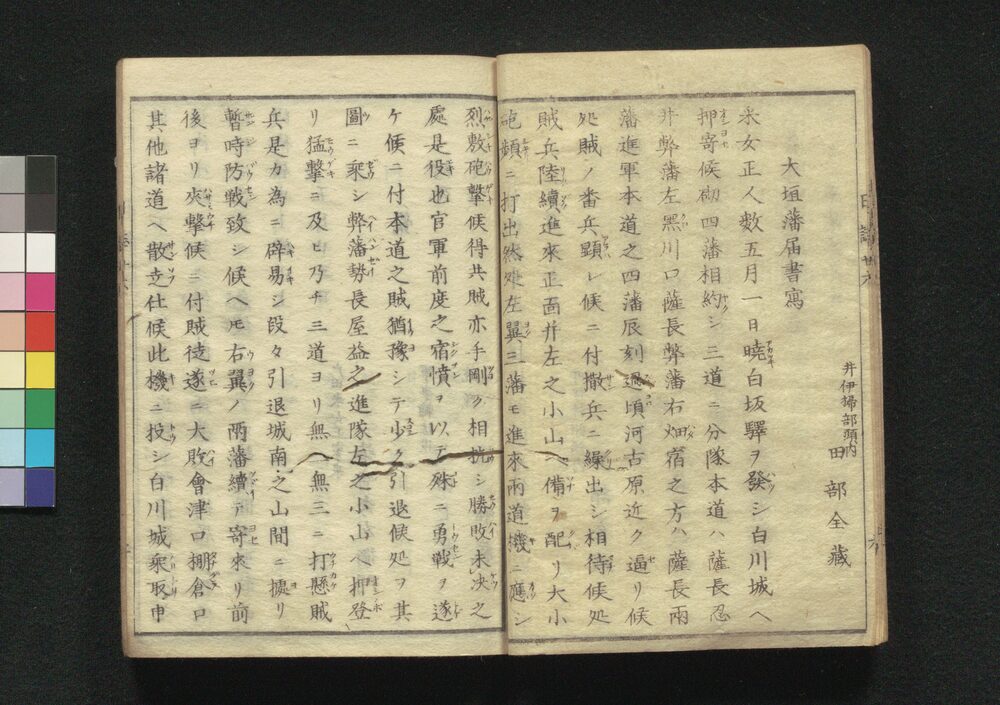 井伊掃部頭内
田部全藏
大垣藩届書寫
采女正人数五月一日曉白坂驛ヲ發シ白川城ヘ
押寄候砌四藩相約シ三道ニ分隊本道ハ薩長忍
并弊藩左黒川口薩長弊藩右畑宿之方ハ薩長兩
藩進軍本道之四藩辰刻過頃河古原近ク逼リ候
処賊ノ番兵顕レ候ニ付撒兵ニ繰出シ相待候処
賊兵陸續進來正面并左之小山ヘ備ヲ配リ大小
砲頻ニ打出然処左翼三藩モ進來兩道機ニ應シ
烈敷砲撃候得共賊亦手剛ク相抗シ勝敗未决之
處是役也官軍前度之宿憤ヲ以テ殊ニ勇戰ヲ遂
ケ候ニ付本道之賊猶豫シテ少ク引退候処ヲ其
圖ニ乘シ弊藩勢長屋益之進隊左之小山ヘ押登
リ猛撃ニ及ヒ乃チ三道ヨリ無ヘ無三ニ打懸賊
兵是カ為ニ辟易シ段々引退城南之山間ニ據リ
暫時防戦致シ候ヘモ右翼ノ兩藩續テ寄來リ前
後ヨリ夾撃候ニ付賊徒遂ニ大敗會津口棚倉口
其他諸道ヘ散走仕候此機ニ投シ白川城乘取申